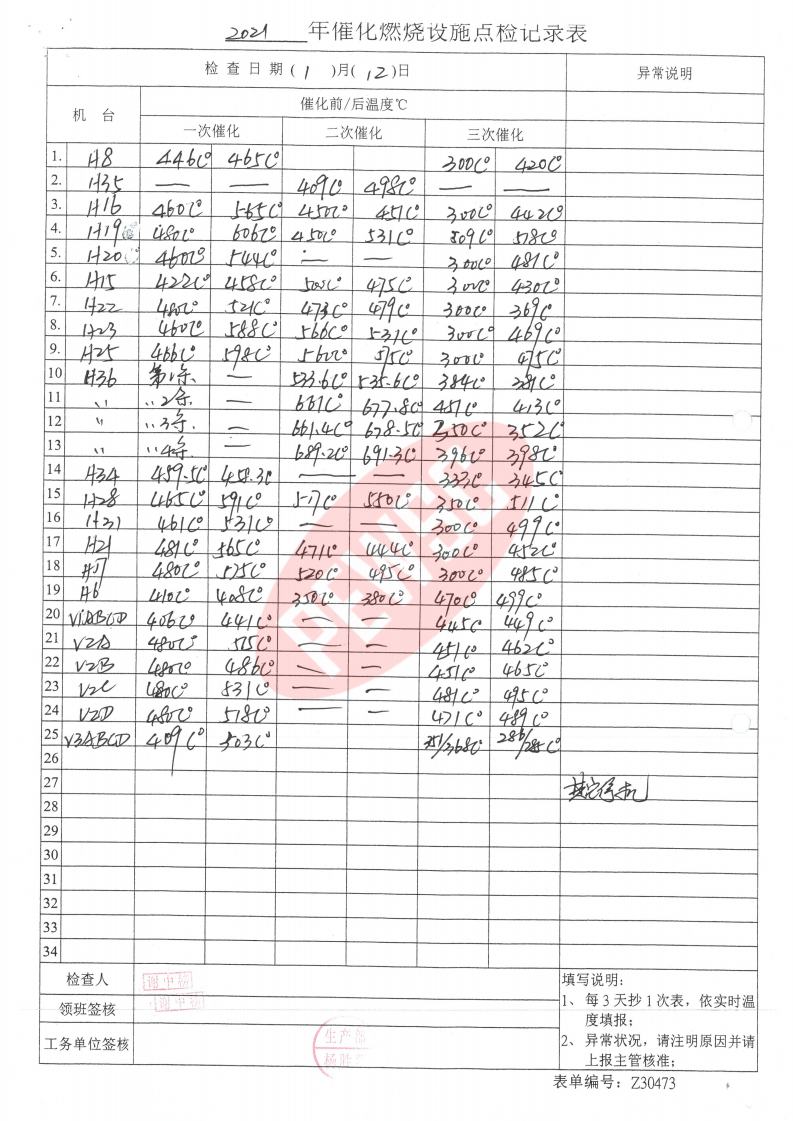 2021 年催化燃烧设施点检记录表
检查日期(1)月(12)日 异常说明
机台 催化前/后温度℃
一次催化 二次催化 三次催化
1. H8 446C° 465C° 300C° 420C°
2. H35 — — 409C° 498C° — —
3. H16 460C° 565C° 450C° 451C° 300C° 442C°
4. H19 480C° 606C° 450C° 531C° 509C° 578C°
5. H20 460C° 544C° — — 300C° 481C°
6. H15 422C° 458C° 500C° 475C° 300C° 430C°
7. H22 480C° 521C° 473C° 479C° 300C° 369C°
8. H23 460C° 588C° 566C° 531C° 300C° 469C°
9. H25 466C° 598C° 560C° 575C° 300C° 475C°
10 H36 第1条 — 533.6C° 535.6C° 384C° 381C°
11 〃 〃2条 — 661C° 677.8C° 451C° 413C°
12 〃 〃3条 — 661.4C° 678.5C° 350C° 352C°
13 〃 〃4条 — 689.2C° 691.3C° 396C° 398C°
14 H34 459.5C° 458.3C° — — 333C° 345C°
15 H28 465C° 591C° 517C° 550C° 350C° 511C°
16 H31 461C° 531C° — — 300C° 499C°
17 H21 481C° 565C° 471C° 444C° 300C° 452C°
18 H17 480C° 575C° 520C° 495C° 300C° 485C°
19 H6 410C° 408C° 350C° 380C° 470C° 499C°
20 V1ABCD 406C° 441C° — — 445C° 449C°
21 V2A 480C° 575C° — — 451C° 462C°
22 V2B 480C° 486C° — — 451C° 465C°
23 V2C 480C° 531C° — — 481C° 495C°
24 V2D 480C° 518C° — — 471C° 489C°
25 V3ABCD 409C° 503C° 351/368C° 286/285C°
26
27
28
29
30
31
32
33
34
PEWC
检查人 谢中杨
领班签核 谢中杨
工务单位签核 生产部
填写说明:
1、每3天抄1次表，依实时温
度填报;
2、异常状况，请注明原因并请
上报主管核准;
表单编号：Z30473